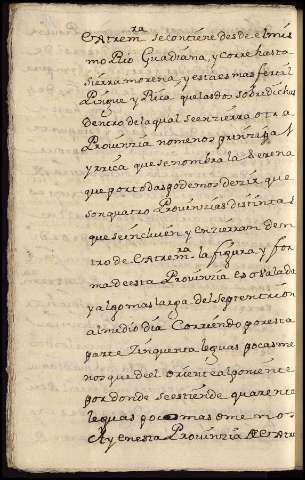 extrem.ra se contiene desde el mis
mo Rio Guadiana, y corre hasta
sierra morena, y esta es mas fertil
Pingue y Rica que las dos sobredichas
dentro de la qual se enzierra otra
Provinzia no menos prinzipal
y rrica que se nombra la serena
que por todas podemos dezir que
son quatro Provinzias distintas
que se incluien y enzierran dem
tro de extrem.ra la figura y for
ma de esta Provinzia es ovalada
y algo mas larga del septentrion
al medio dia Corriendo por esta
parte Zinquenta leguas pocas me
nos que de el oriente al poniente
por donde se estiende quarenta
leguas poco mas o menos
Ay en esta Provinzia de extr